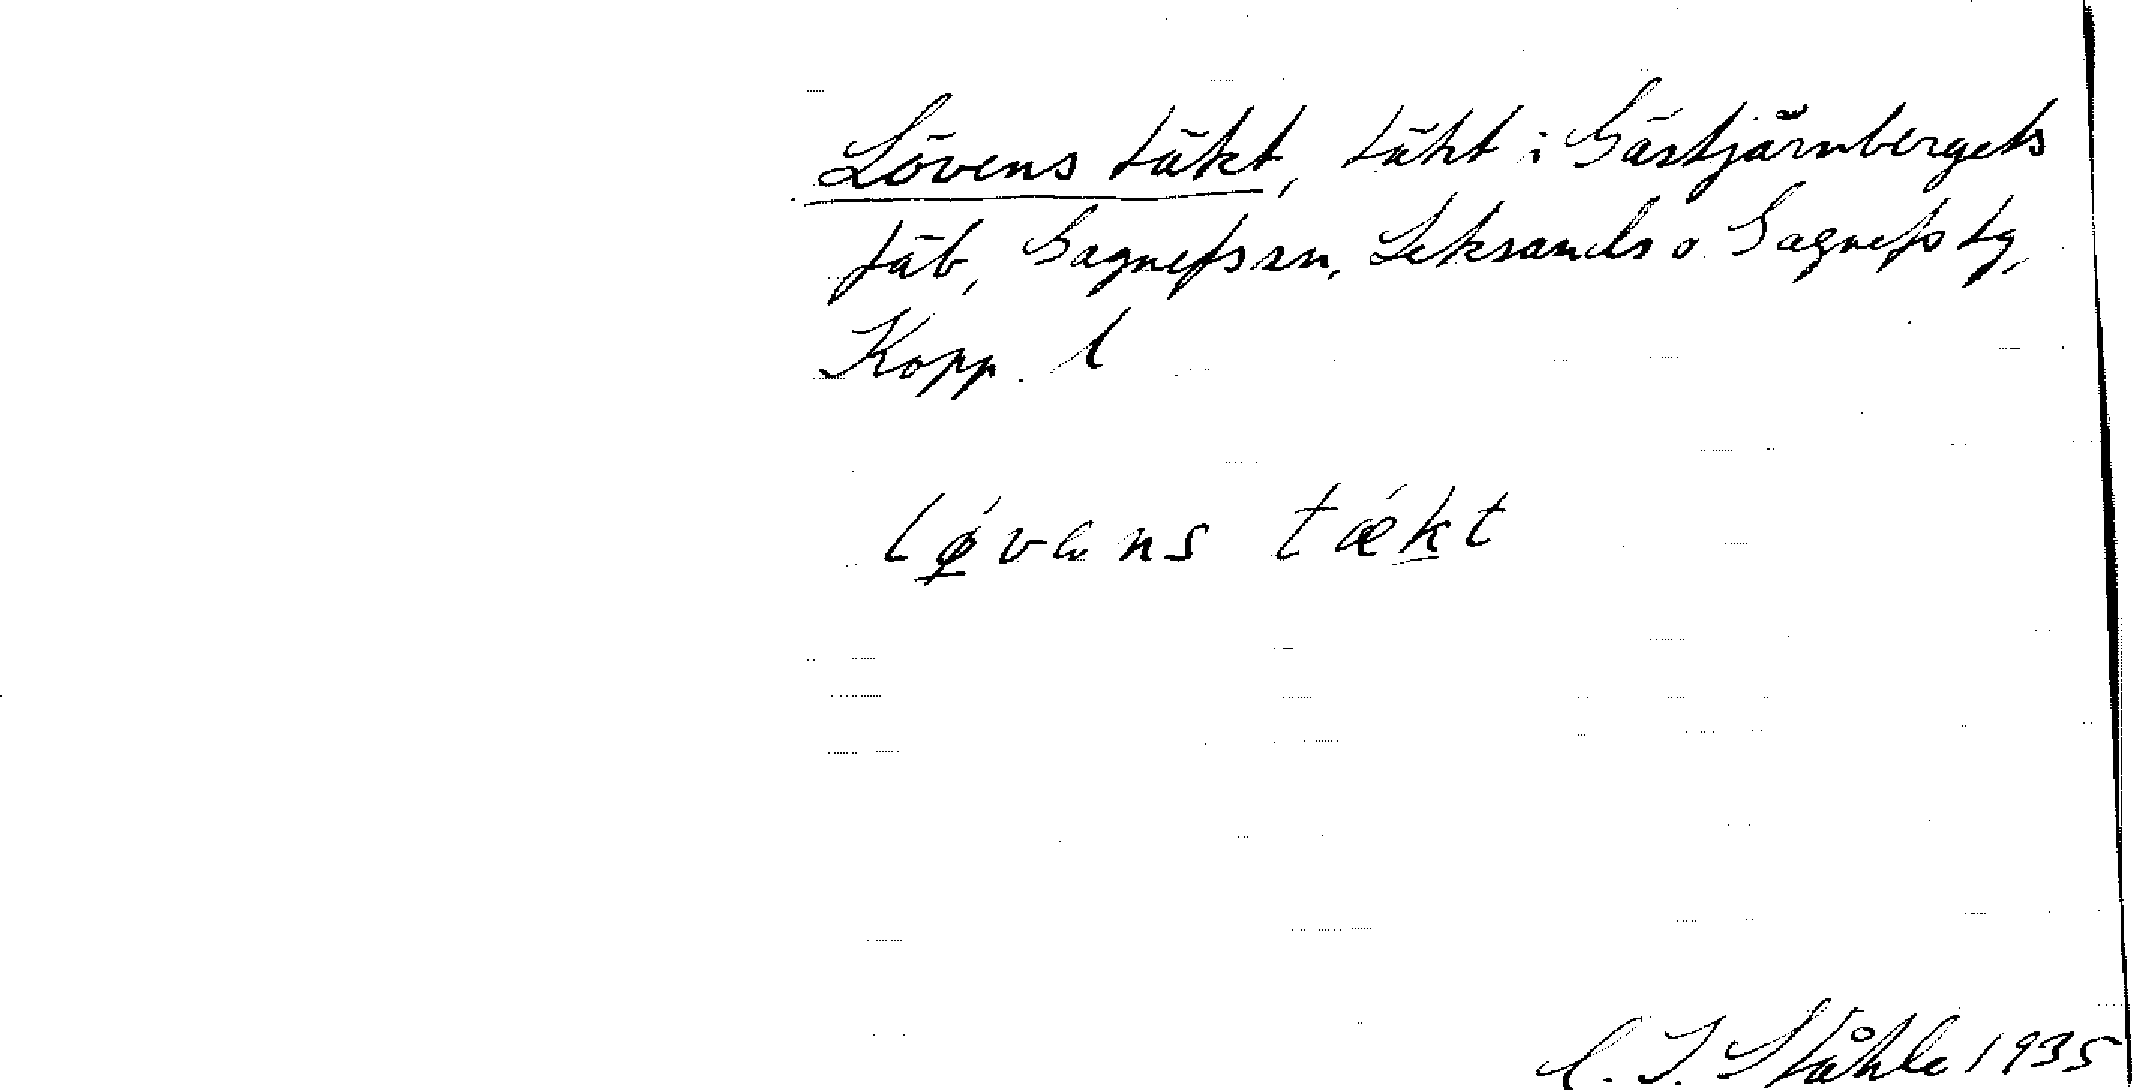 Lövens täkt, täkt i Gästjärnbergets
fäb, Gagnefs sn, Leksands o Gagnefs tg,
Kopp. l
lǿvens tǽkt
C. I. Ståhle 1935